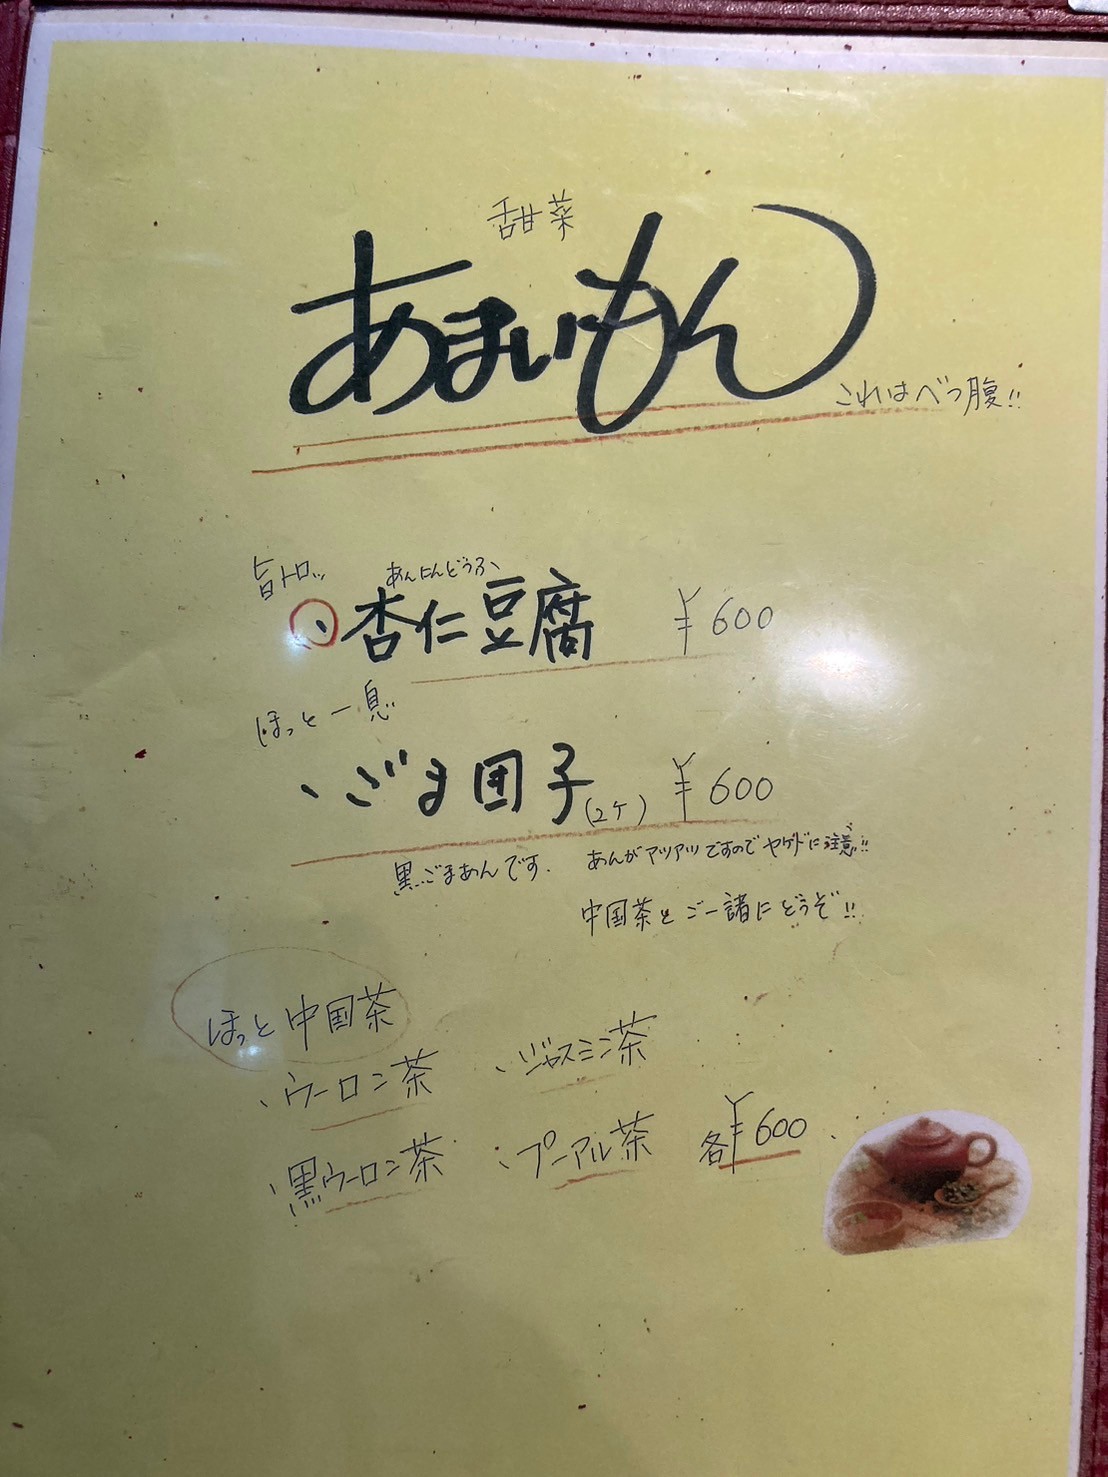 甜菜
あまいもん
これはべつ腹!!
旨トロッ
あんにんどうふ
、杏仁豆腐 ¥600
ほっと一息
、ごま団子(2ケ) ¥600
黒ごまあんです. あんがアツアツですのでヤケドに注意!!
中国茶とご一緒にどうぞ!!
ほっと中国茶
、ウーロン茶 、ジャスミン茶
、黒ウーロン茶 、プーアル茶 各¥600